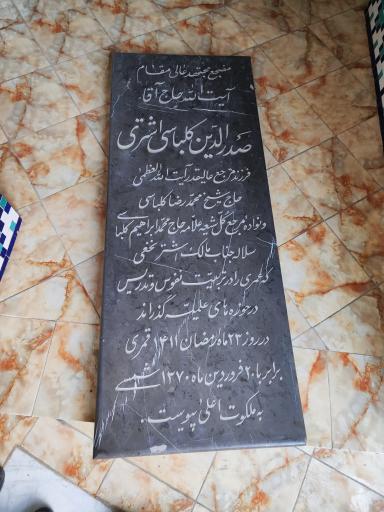 مضجع مجتهد عالی مقام
آیت الله حاج آقا
صدرالدین کلباسی اشتری
فرزند مرجع عالیقدر آیت الله العظمی
حاج شیخ محمد رضا کلباسی
و نواده مرجع کل شیعه علامه حاج محمد ابراهیم کلباسی
سلاله جناب مالک اشتر نخعی
که عمری را در تربیت نفوس و تدریس
در حوزه های علمیه گذراند
در روز ۲۳ ماه رمضان ۱۴۱۱ قمری
برابر با ۲۰ فروردین ماه ۱۳۷۰ شمسی
به ملکوت اعلی پیوست.